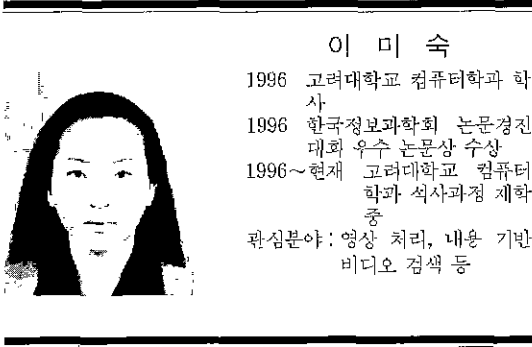 이 미 숙
1996 고려대학교 컴퓨터학과 학
사
1996 한국정보과학회 논문경진
대회 우수 논문상 수상
1996~현재 고려대학교 컴퓨터
학과 석사과정 재학
중
관심분야 : 영상 처리, 내용 기반
비디오 검색 등